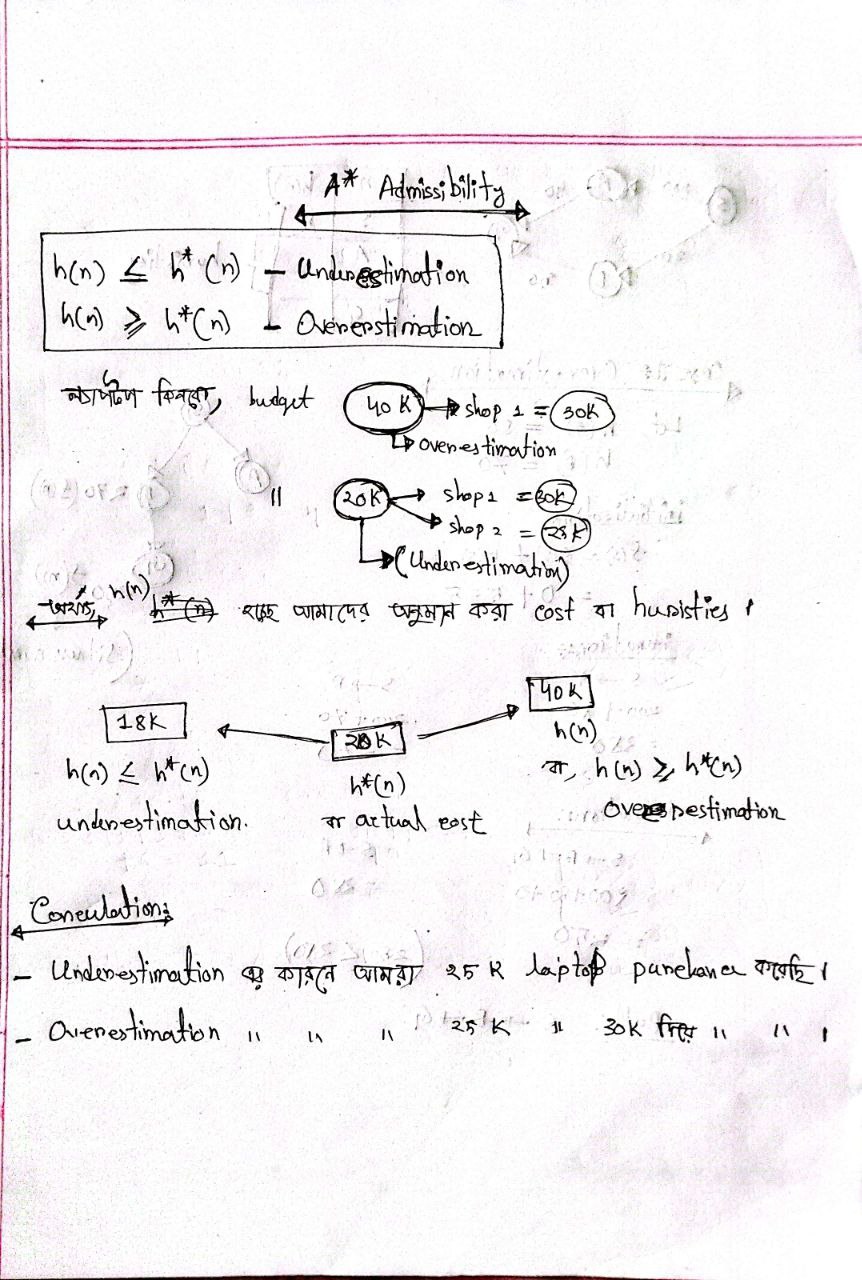 A* Admissibility
h(n) ≤ h*(n) - Underestimation
h(n) ≥ h*(n) - Overerstimation
ল্যাপটপ কিনবো, budget 40K → shop 1 = 30K
↳ overestimation
" 20K → shop 1 = 30K
→ shop 2 = 25K
→ (Underestimation)
অর্থাৎ, h(n) হচ্ছে আমাদের অনুমান করা cost বা huristies।
18K
h(n) ≤ h*(n)
underestimation.
h*(n)
বা actual cost
40K
h(n)
বা, h(n) ≥ h*(n)
Conculation:
- Underestimation এর কারনে আমরা 25 K laptop purchaner করেছি।
- Overestimation " " " 25 K " 30K দিয়ে " " ।